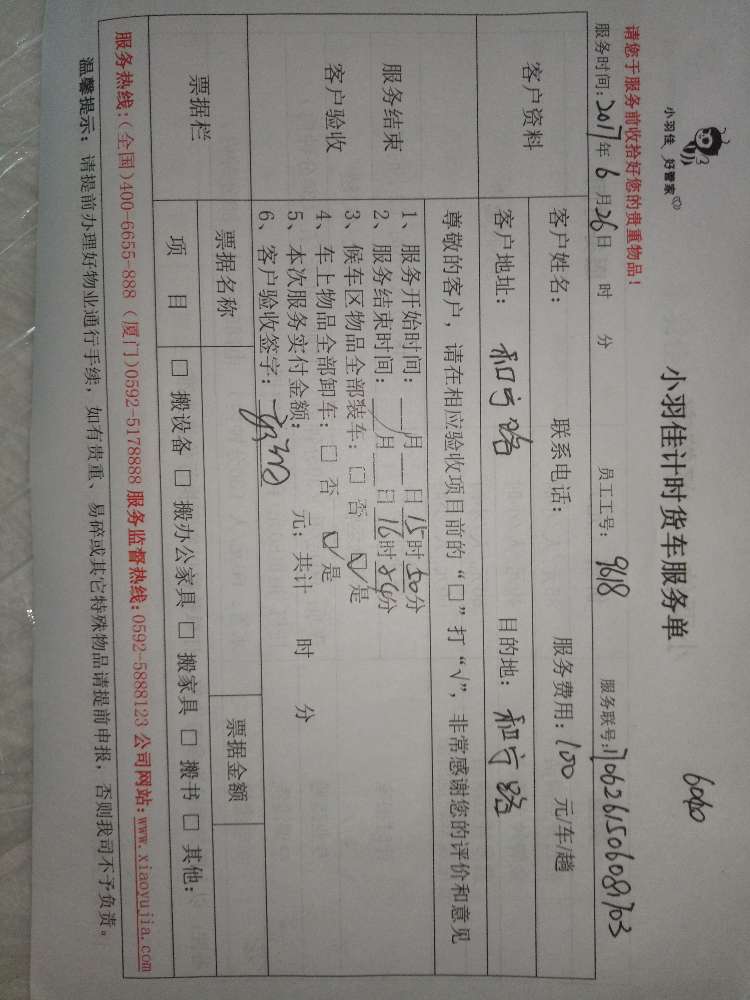 小羽佳 好管家
6040
小羽佳计时货车服务单
请您于服务前收拾好您的贵重物品！
服务时间：2017年 6 月26日 时 分 员工工号：9618 服务联号：170626150608703
客户资料
客户姓名： 联系电话： 服务费用：100 元/车/趟
客户地址：和宁路 目的地：和宁路
服务结束
客户验收
尊敬的客户，请在相应验收项目前的“□”打“√”，非常感谢您的评价和意见
1、服务开始时间： 月 日15时50分
2、服务结束时间： 月 日16时24分
3、候车区物品全部装车：□ 否 ☑是
4、车上物品全部卸车：□ 否 ☑是
5、本次服务实付金额： 元；共计 时 分
6、客户验收签字：
票据栏
票据名称 票据金额
项 目 □ 搬设备 □ 搬办公家具 □ 搬家具 □ 搬书 □ 其他：
服务热线：(全国)400-6655-888 (厦门)0592-5178888 服务监督热线：0592-5888123 公司网站：www.xiaoyujia.com
温馨提示：请提前办理好物业通行手续，如有贵重、易碎或其它特殊物品请提前申报，否则我司不予负责。